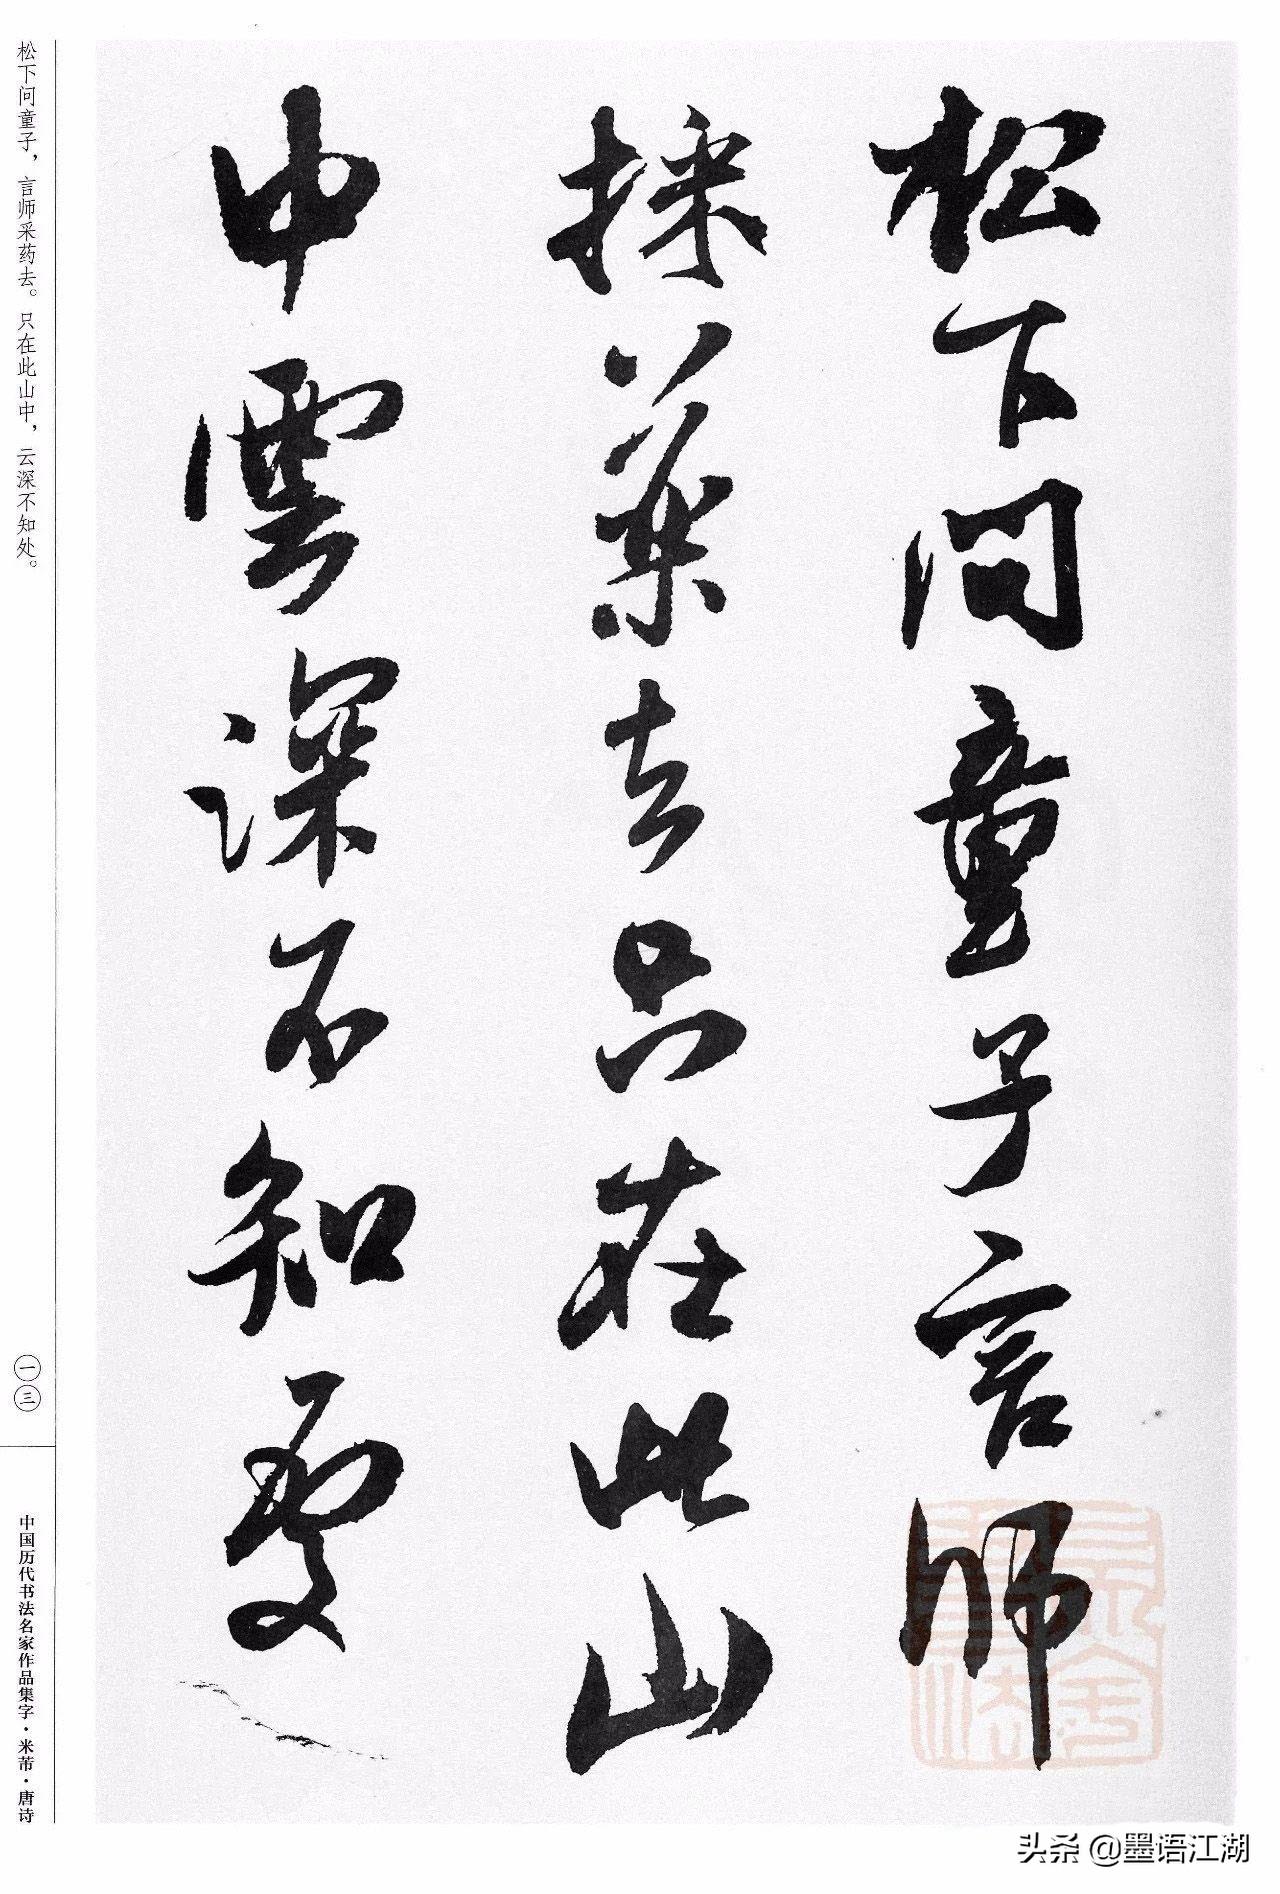 松下问童子言师
採药去只在此山
中雲深不知處
松下问童子，言师采药去。只在此山中，云深不知处。
一三
中国历代书法名家作品集字·米芾·唐诗
头条 @墨语江湖